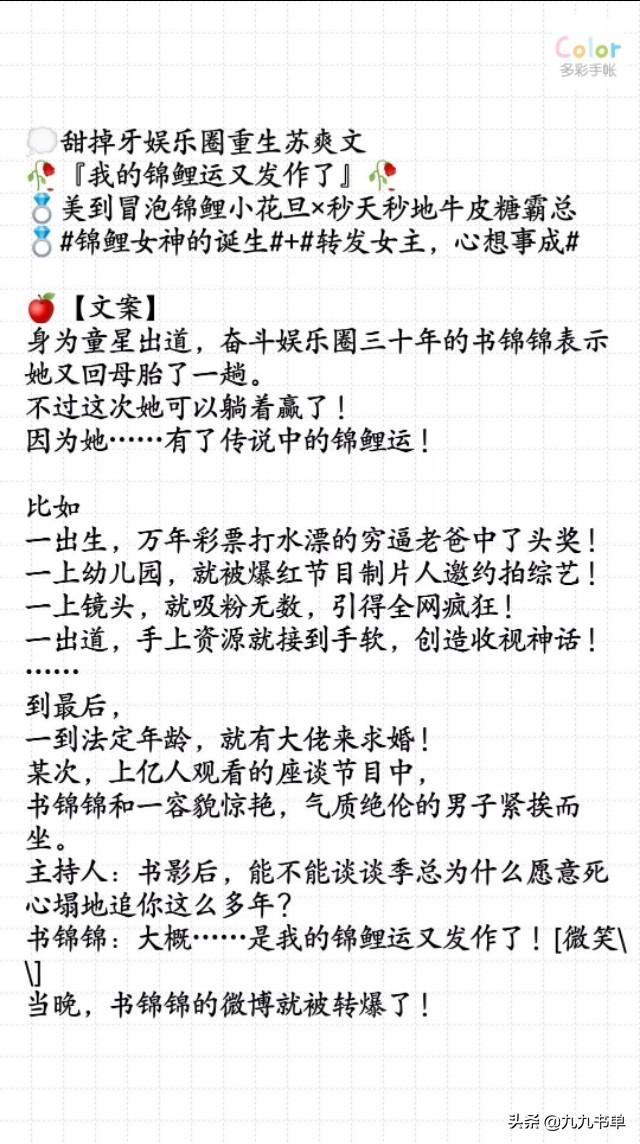 Color
多彩手帐
甜掉牙娱乐圈重生苏爽文
『我的锦鲤运又发作了』
美到冒泡锦鲤小花旦×秒天秒地牛皮糖霸总
#锦鲤女神的诞生#+#转发女主，心想事成#
【文案】
身为童星出道，奋斗娱乐圈三十年的书锦锦表示
她又回母胎了一趟。
不过这次她可以躺着赢了！
因为她……有了传说中的锦鲤运！
比如
一出生，万年彩票打水漂的穷逼老爸中了头奖！
一上幼儿园，就被爆红节目制片人邀约拍综艺！
一上镜头，就吸粉无数，引得全网疯狂！
一出道，手上资源就接到手软，创造收视神话！
……
到最后，
一到法定年龄，就有大佬来求婚！
某次，上亿人观看的座谈节目中，
书锦锦和一容貌惊艳，气质绝伦的男子紧挨而
坐。
主持人：书影后，能不能谈谈季总为什么愿意死
心塌地追你这么多年？
书锦锦：大概……是我的锦鲤运又发作了！[微笑\
\]
当晚，书锦锦的微博就被转爆了！
头条 @九九书单